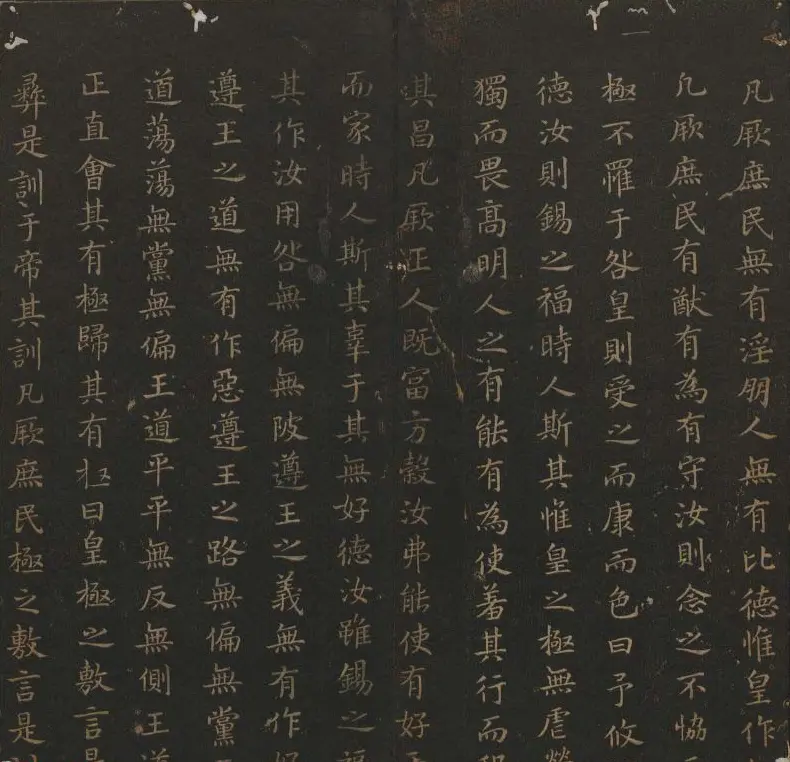 凡厥庶民無有淫朋人無有比德惟皇作
凡厥庶民有猷有為有守汝則念之不恊
極不罹于咎皇則受之而康而色曰予攸
德汝則錫之福時人斯其惟皇之極無虐
獨而畏高明人之有能有為使羞其行而
其昌凡厥正人既富方穀汝弗能使有好
而家時人斯其辜于其無好德汝雖錫之
其作汝用咎無偏無陂遵王之義無有作
遵王之道無有作惡遵王之路無偏無黨
道蕩蕩無黨無偏王道平平無反無側王
正直會其有極歸其有極曰皇極之敷言
彞是訓于帝其訓凡厥庶民極之敷言是